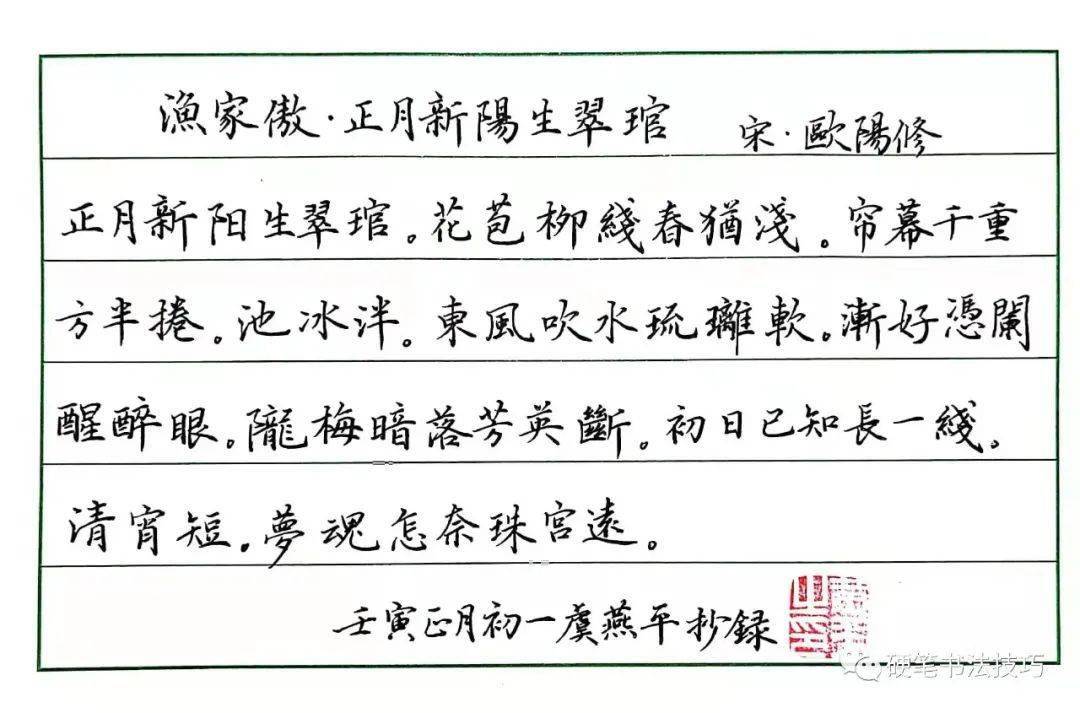 漁家傲·正月新陽生翠琯 宋·歐陽修
正月新阳生翠琯。花苞柳綫春猶淺。帘幕千重
方半捲。池冰泮。東風吹水琉璃軟。漸好憑闌
醒醉眼。隴梅暗落芳英斷。初日已知長一綫。
清宵短。夢魂怎奈珠宮遠。
壬寅正月初一虞燕平抄録
硬笔书法技巧